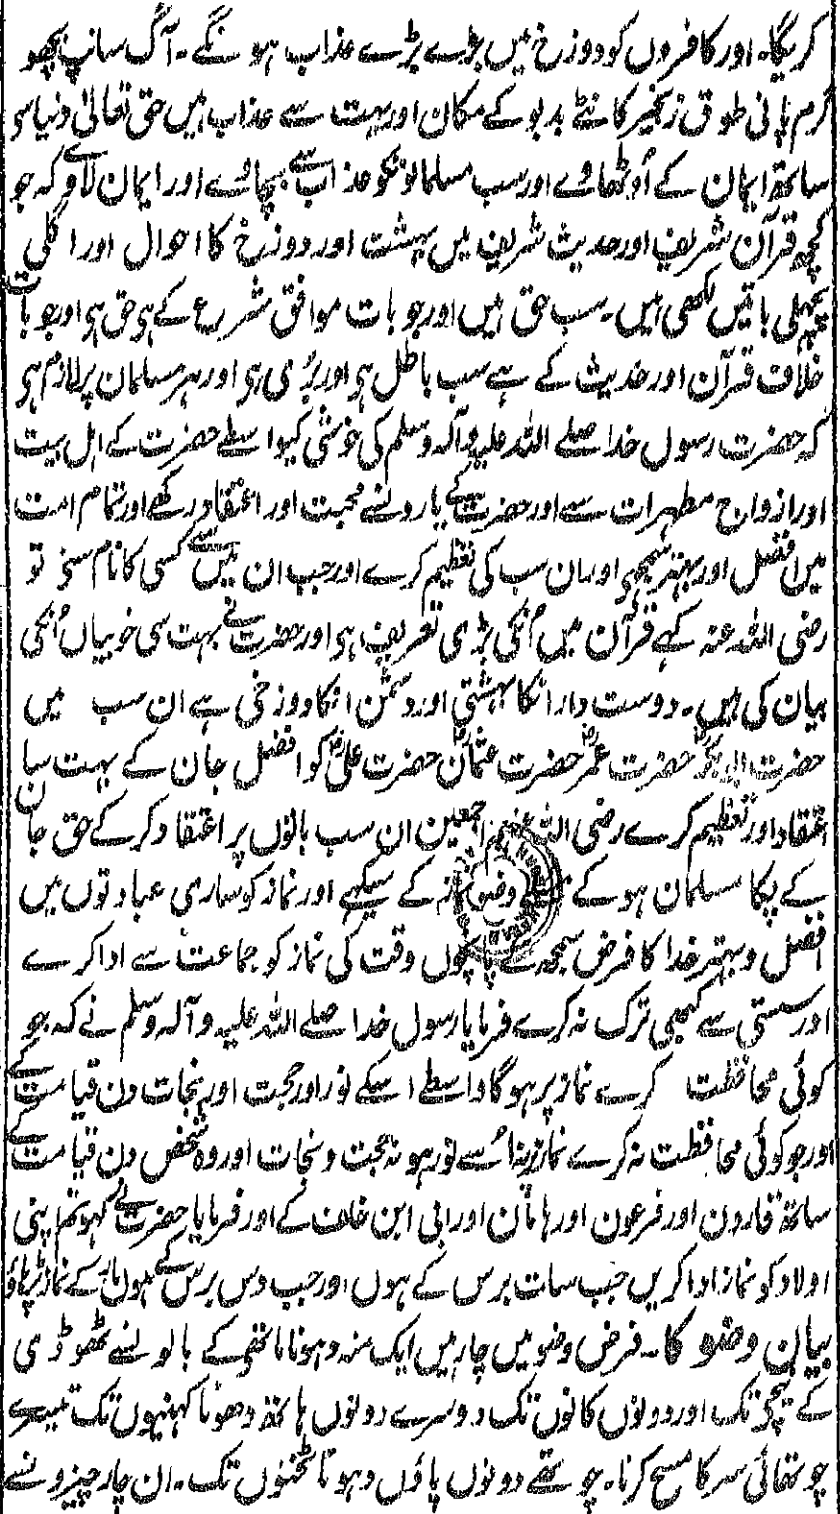 کریگا۔ اور کافروں کو دوزخ میں بڑے بڑے عذاب ہونگے۔ آگ سانپ بچھو
گرم پانی طوق زنجیر کانٹے بدبو کے مکان اور بہت سے عذاب ہیں حق تعالیٰ دنیا سو
ساتھ ایمان کے اُوٹھاوے اور سب مسلمانونکو عذاب سے بچالے اور ایمان لاوے کہ جو
کچھ قرآن شریف اور حدیث شریف میں بہشت اور دوزخ کا احوال اور اگلی
پچھلی باتیں لکھی ہیں۔ سب حق ہیں اور جو بات موافق شرع کے ہی حق ہی اور جو بات
خلاف قرآن اور حدیث کے ہے سب باطل ہی اور بُری ہی اور ہر مسلمان پر لازم ہی
کہ حضرت رسول خدا صلے اللہ علیہ وآلہ وسلم کی خوشی کیواسطے حضرت کے اہل بیت
اور ازواج مطہرات سے اور حضرت کے یارونسے محبت اور اعتقاد رکھے اور تمام امت
میں افضل اور بہتر سمجھے اور ان سب کی تعظیم کرے اور جب ان میں سے کسی کا نام سنے تو
رضی اللہ عنہ کہے قرآن میں اُنکی بڑی تعریف ہی اور حضرت نے بہت سی خوبیاں اُنکی
بیان کی ہیں۔ دوست دار انکا بہشتی اور دشمن انکا دوزخی ہے ان سب میں
حضرت ابوبکرؓ حضرت عمرؓ حضرت عثمانؓ حضرت علیؓ کو افضل جان کے بہت سا
اعتقاد اور تعظیم کرے رضی اللہ عنہم اجمعین ان سب باتوں پر اعتقاد کرکے حق جان
کے پکا مسلمان ہوکے وضو نماز کے سیکہے اور نماز کو ساری عبادتوں میں
افضل و بہتر خدا کا فرض سمجھ کے پانچوں وقت کی نماز کو جماعت سے ادا کرے
اور سستی سے کبھی ترک نہ کرے فرمایا رسول خدا صلے اللہ علیہ وآلہ وسلم نے کہ جو
کوئی محافظت کرے نماز پر ہوگا واسطے اسکے نور اور حجت اور نجات دن قیامت کے
اور جو کوئی محافظت نہ کرے نماز پر نہ اُسے نور ہو نہ حجت و نجات اور وہ شخص دن قیامت کے
ساتھ قارون اور فرعون اور ہامان اور ابی ابن خلف کے اور فرمایا حضرت نے کہو تم اپنی
اولاد کو نماز ادا کریں جب سات برس کے ہوں اور جب دس برس کے ہوں مار کے نماز پڑہاؤ
بیان وضو کا۔ فرض وضو میں چار ہیں ایک منہ دہونا ماتھے کے بالونسے ٹھوڈی
کے نیچے تک اور دونوں کانوں تک دوسرے دونوں ہاتھ دھونا کہنیوں تک تیسرے
چوتھائی سر کا مسح کرنا۔ چوتھے دونوں پاؤں دہونا ٹخنوں تک۔ ان چار چیزونسے